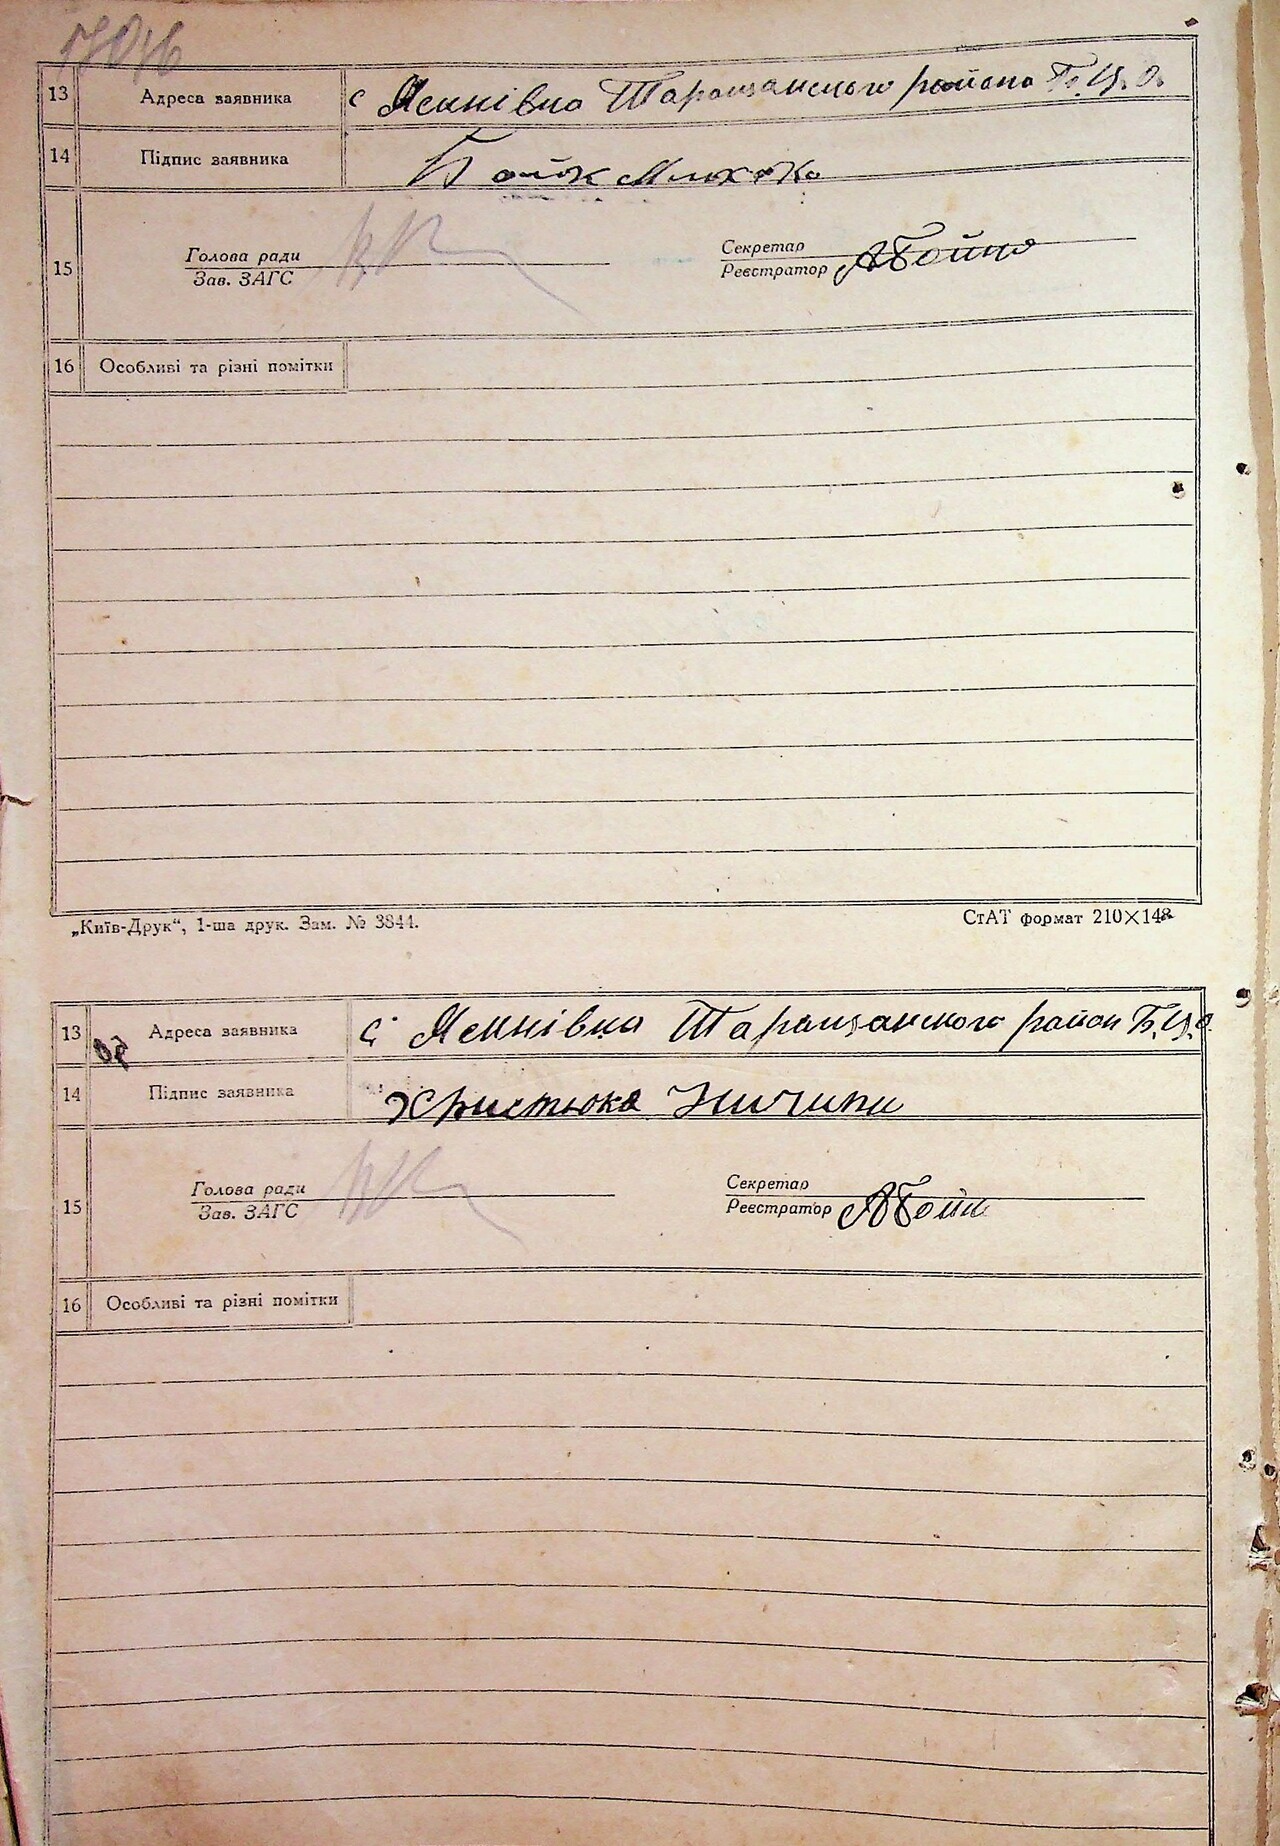 13 Адреса заявника с Яснівка Таращанського района Б.Ц.О.
14 Підпис заявника Бойок
15 Голова ради Зав. ЗАГС Секретар Реєстратор АБойко
16 Особливі та різні помітки
„Київ-Друк“, 1-ша друк. Зам. № 3844. СтАТ формат 210×148
13 Адреса заявника с Яснівка Таращанського район Б.Ц.О.
14 Підпис заявника Христюка Ничипи
15 Голова ради Зав. ЗАГС Секретар Реєстратор АБойк
16 Особливі та різні помітки